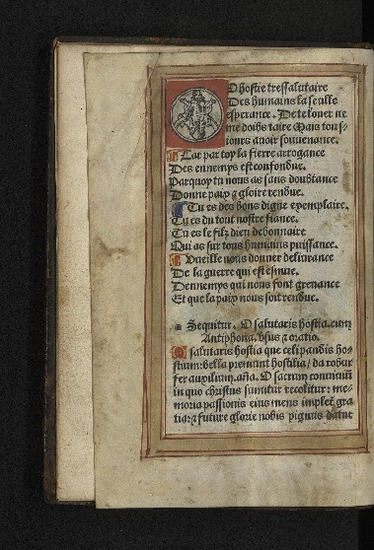 O hostie tressalutaire
Des humains la seulle
esperance. De te loner ne
me doibs taire Mais tous-
iours auoir souuenance.
Car par toy la fierre arrogance
Des ennemys est confondue.
Parquoy tu nous as sans doubtance
Donne paix & gloire rendue.
Tu es des bons digne exemplaire.
Tu es du tout nostre fiance.
Tu es le filz dieu debonnaire
Qui as sur tous humains puissance.
Vueille nous donner deliurance
De la guerre qui est esmue.
Dennemys qui nous font greuance
Et que la paix nous soit rendue.
Sequitur. O salutaris hostia. cum
Antiphona. vsus & oratio.
O salutaris hostia que celi pandis ho-
stium: bella premunt hostilia / da robur
fer auxilium. aña. O sacrum conuiuiū
in quo christus sumitur recolitur: me-
moria passionis eius mens impleť gra
tia: & future glorie nobis pignus datur